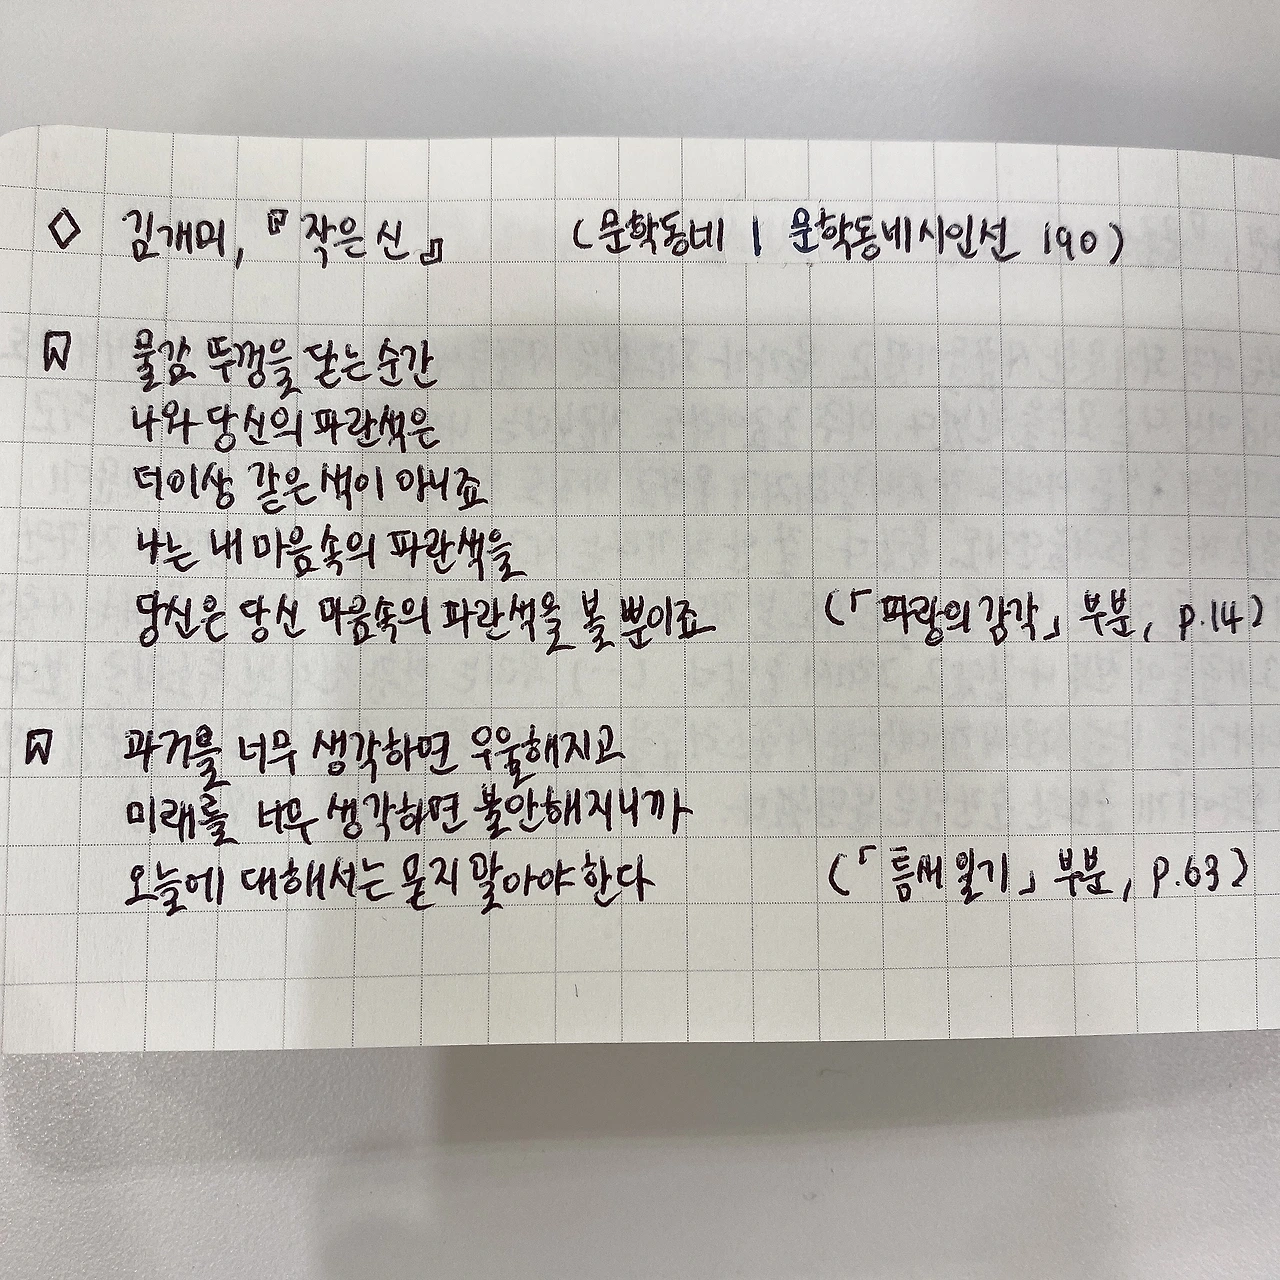 ◇ 김개미, 『작은 신』 (문학동네 | 문학동네시인선 190)
물감 뚜껑을 닫는 순간
나와 당신의 파란색은
더이상 같은 색이 아니죠
나는 내 마음속의 파란색을
당신은 당신 마음속의 파란색을 볼 뿐이죠 (「파랑의 감각」 부분, p.14)
과거를 너무 생각하면 우울해지고
미래를 너무 생각하면 불안해지니까
오늘에 대해서는 묻지 말아야 한다 (「틈새 일기」 부분, p.63)